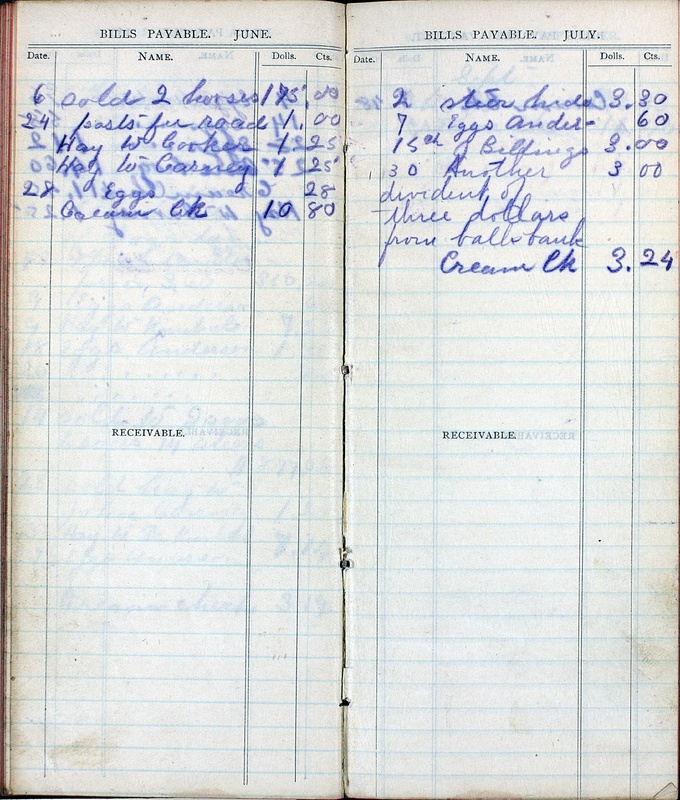 BILLS PAYABLE. JUNE.
Date. NAME. Dolls. Cts.
6 sold 2 horses 175.00
24 posts for road 1.00
Hay W Cooker 1.25
Hay W Carney 1 25
28 Eggs 28
Cream Ck 10 80
RECEIVABLE.
BILLS PAYABLE. JULY.
Date. NAME. Dolls. Cts.
2 steer hide 3.30
7 Eggs Ander- 60
15th Billings 3.00
30 Another 3 00
divident of
three dollars
from balls bank
Cream Ck 3.24
RECEIVABLE.